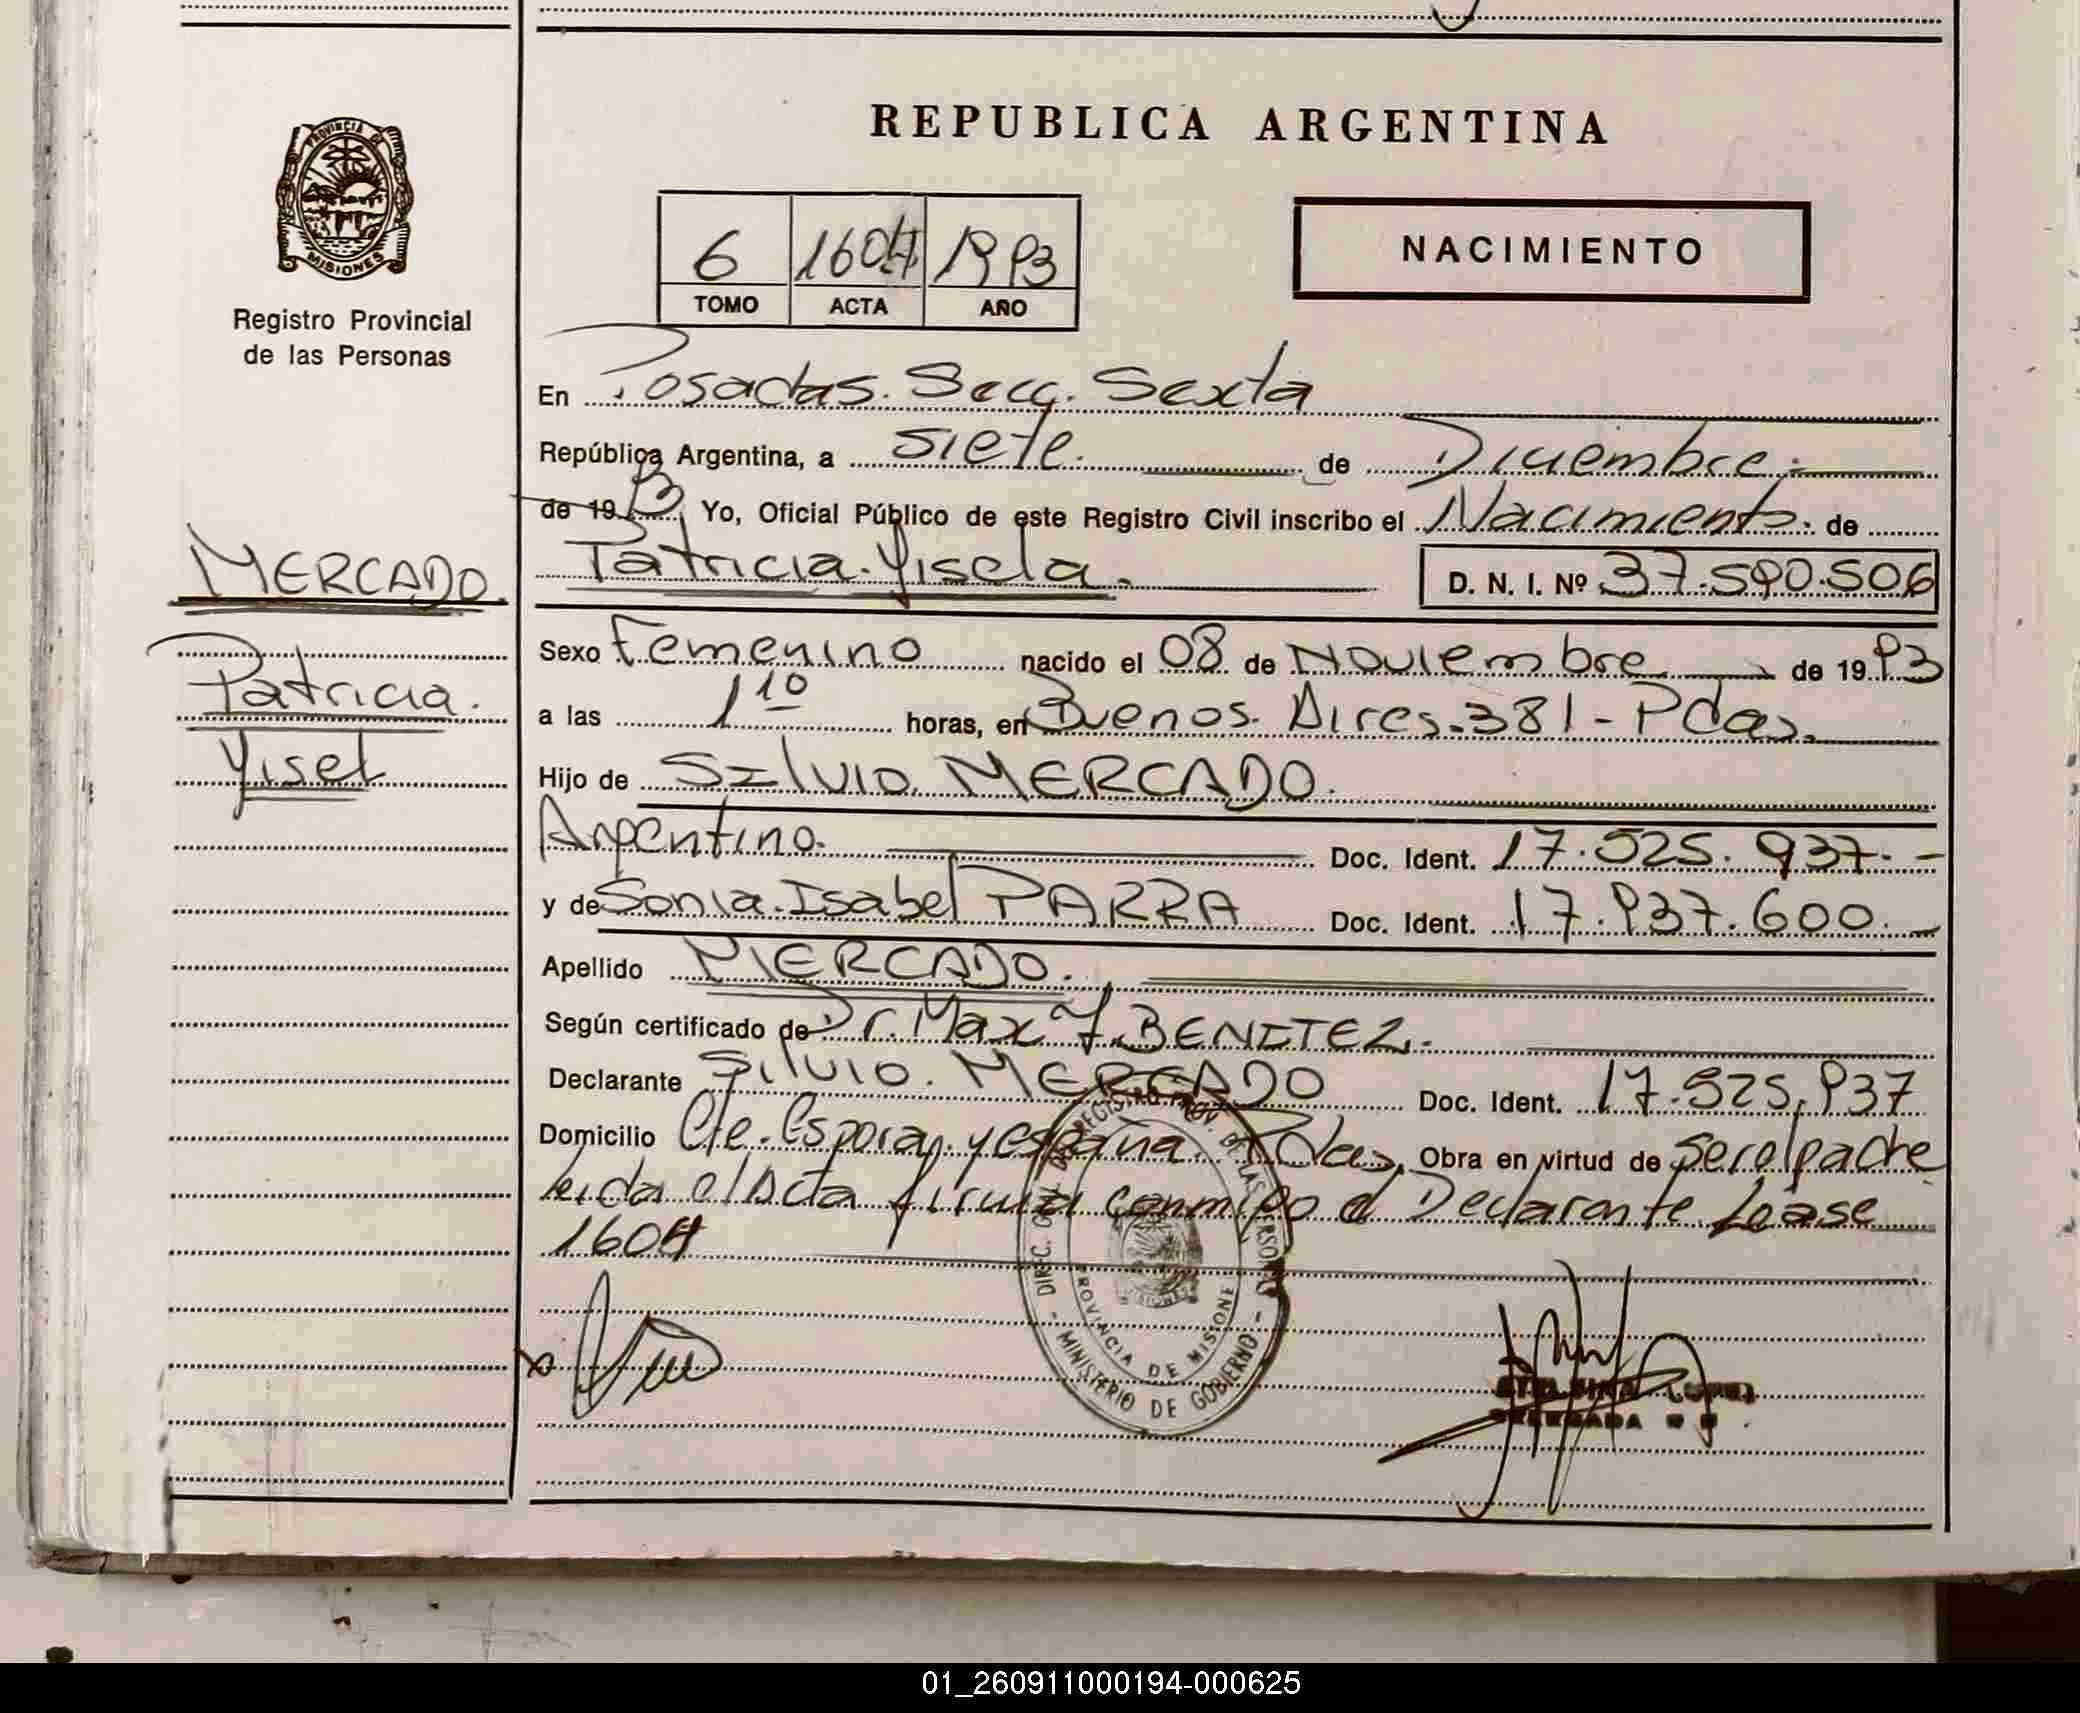 REPUBLICA ARGENTINA
PROVINCIA DE
MISIONES
Registro Provincial
de las Personas
6 1604 1993
TOMO ACTA AÑO
NACIMIENTO
En Posadas. Secc. Sexta
República Argentina, a siete. de Diciembre.-
de 1993 Yo, Oficial Público de este Registro Civil inscribo el Nacimiento. de
Patricia. Yisela. D. N. I. Nº 37.590.506
MERCADO.
Patricia.
Yisel
Sexo Femenino nacido el 08 de Noviembre de 1993
a las 1 10 horas, en Buenos. Aires.381 - Pdas.
Hijo de SIlvio. MERCADO.
Argentino. Doc. Ident. 17.525.937.-
y de Sonia. Isabel PARRA Doc. Ident. 17.937.600.-
Apellido MERCADO.
Según certificado de Dr. Max J. BENITEZ.
Declarante Silvio. MERCADO Doc. Ident. 17.525.937
Domicilio Cte. Espora. y españa. Pdas. Obra en virtud de ser el padre
leida el Acta firma conmigo el Declarante. Léase
1604
DIREC. GRAL. DEL REGISTRO PROV. DE LAS PERSONAS
PROVINCIA DE MISIONES
- MINISTERIO DE GOBIERNO -
DELEGADA
01_260911000194-000625